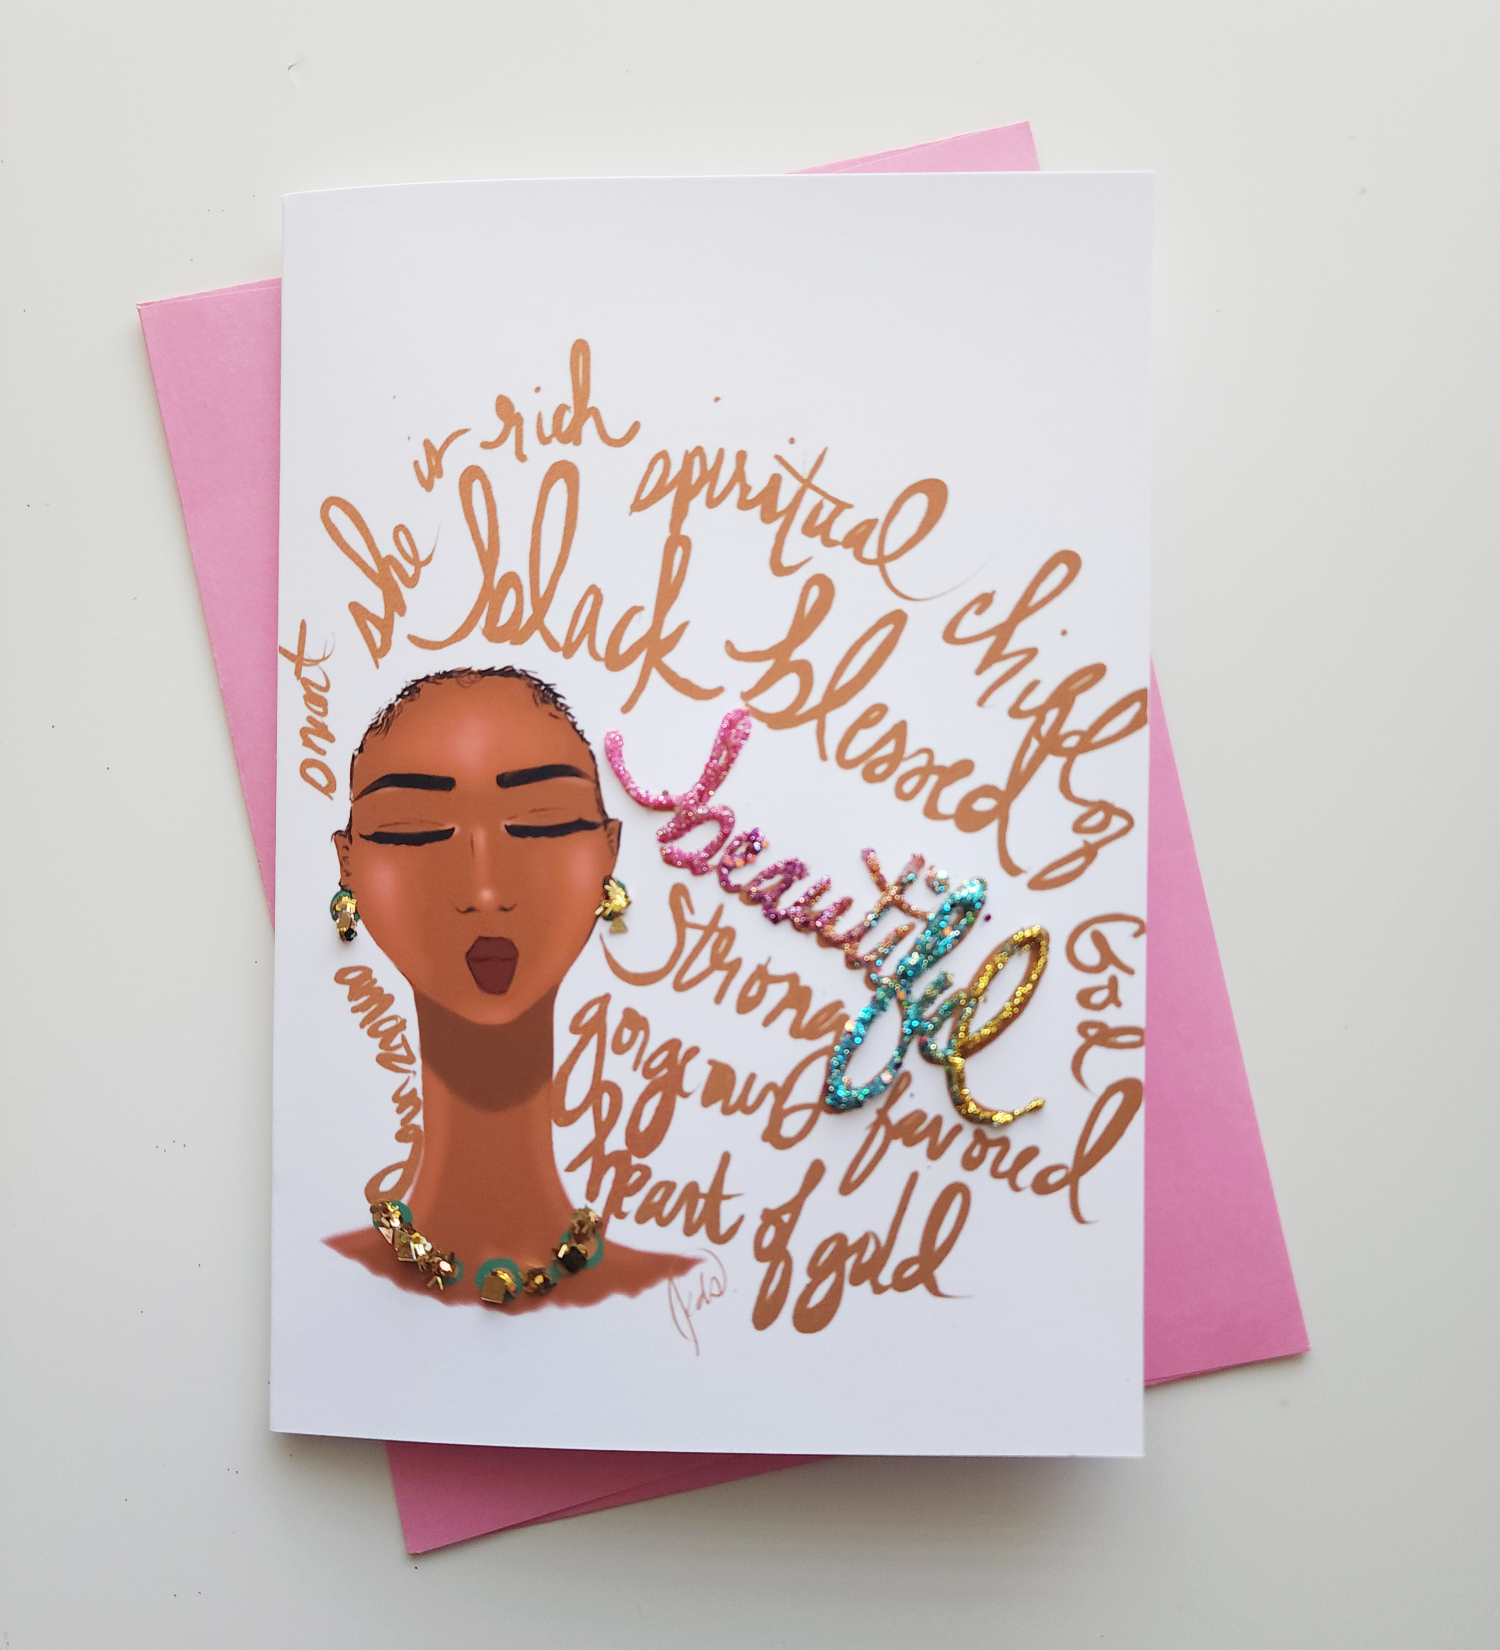 smart
she is rich
spiritual
child of
God
black blessed
beautiful
amazing
Strong
gorgeous favored
heart of gold